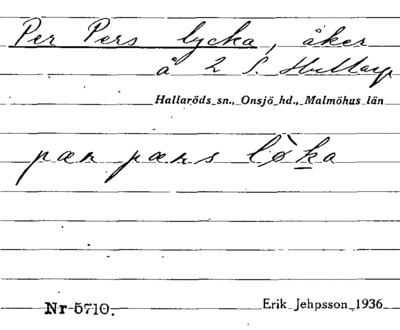 Per Pers lycka, åker
å 2 S. Hultarp
Hallaröds sn., Onsjö hd., Malmöhus län
pær pærs lø̀ka
Nr 5710.
Erik Jehpsson 1936